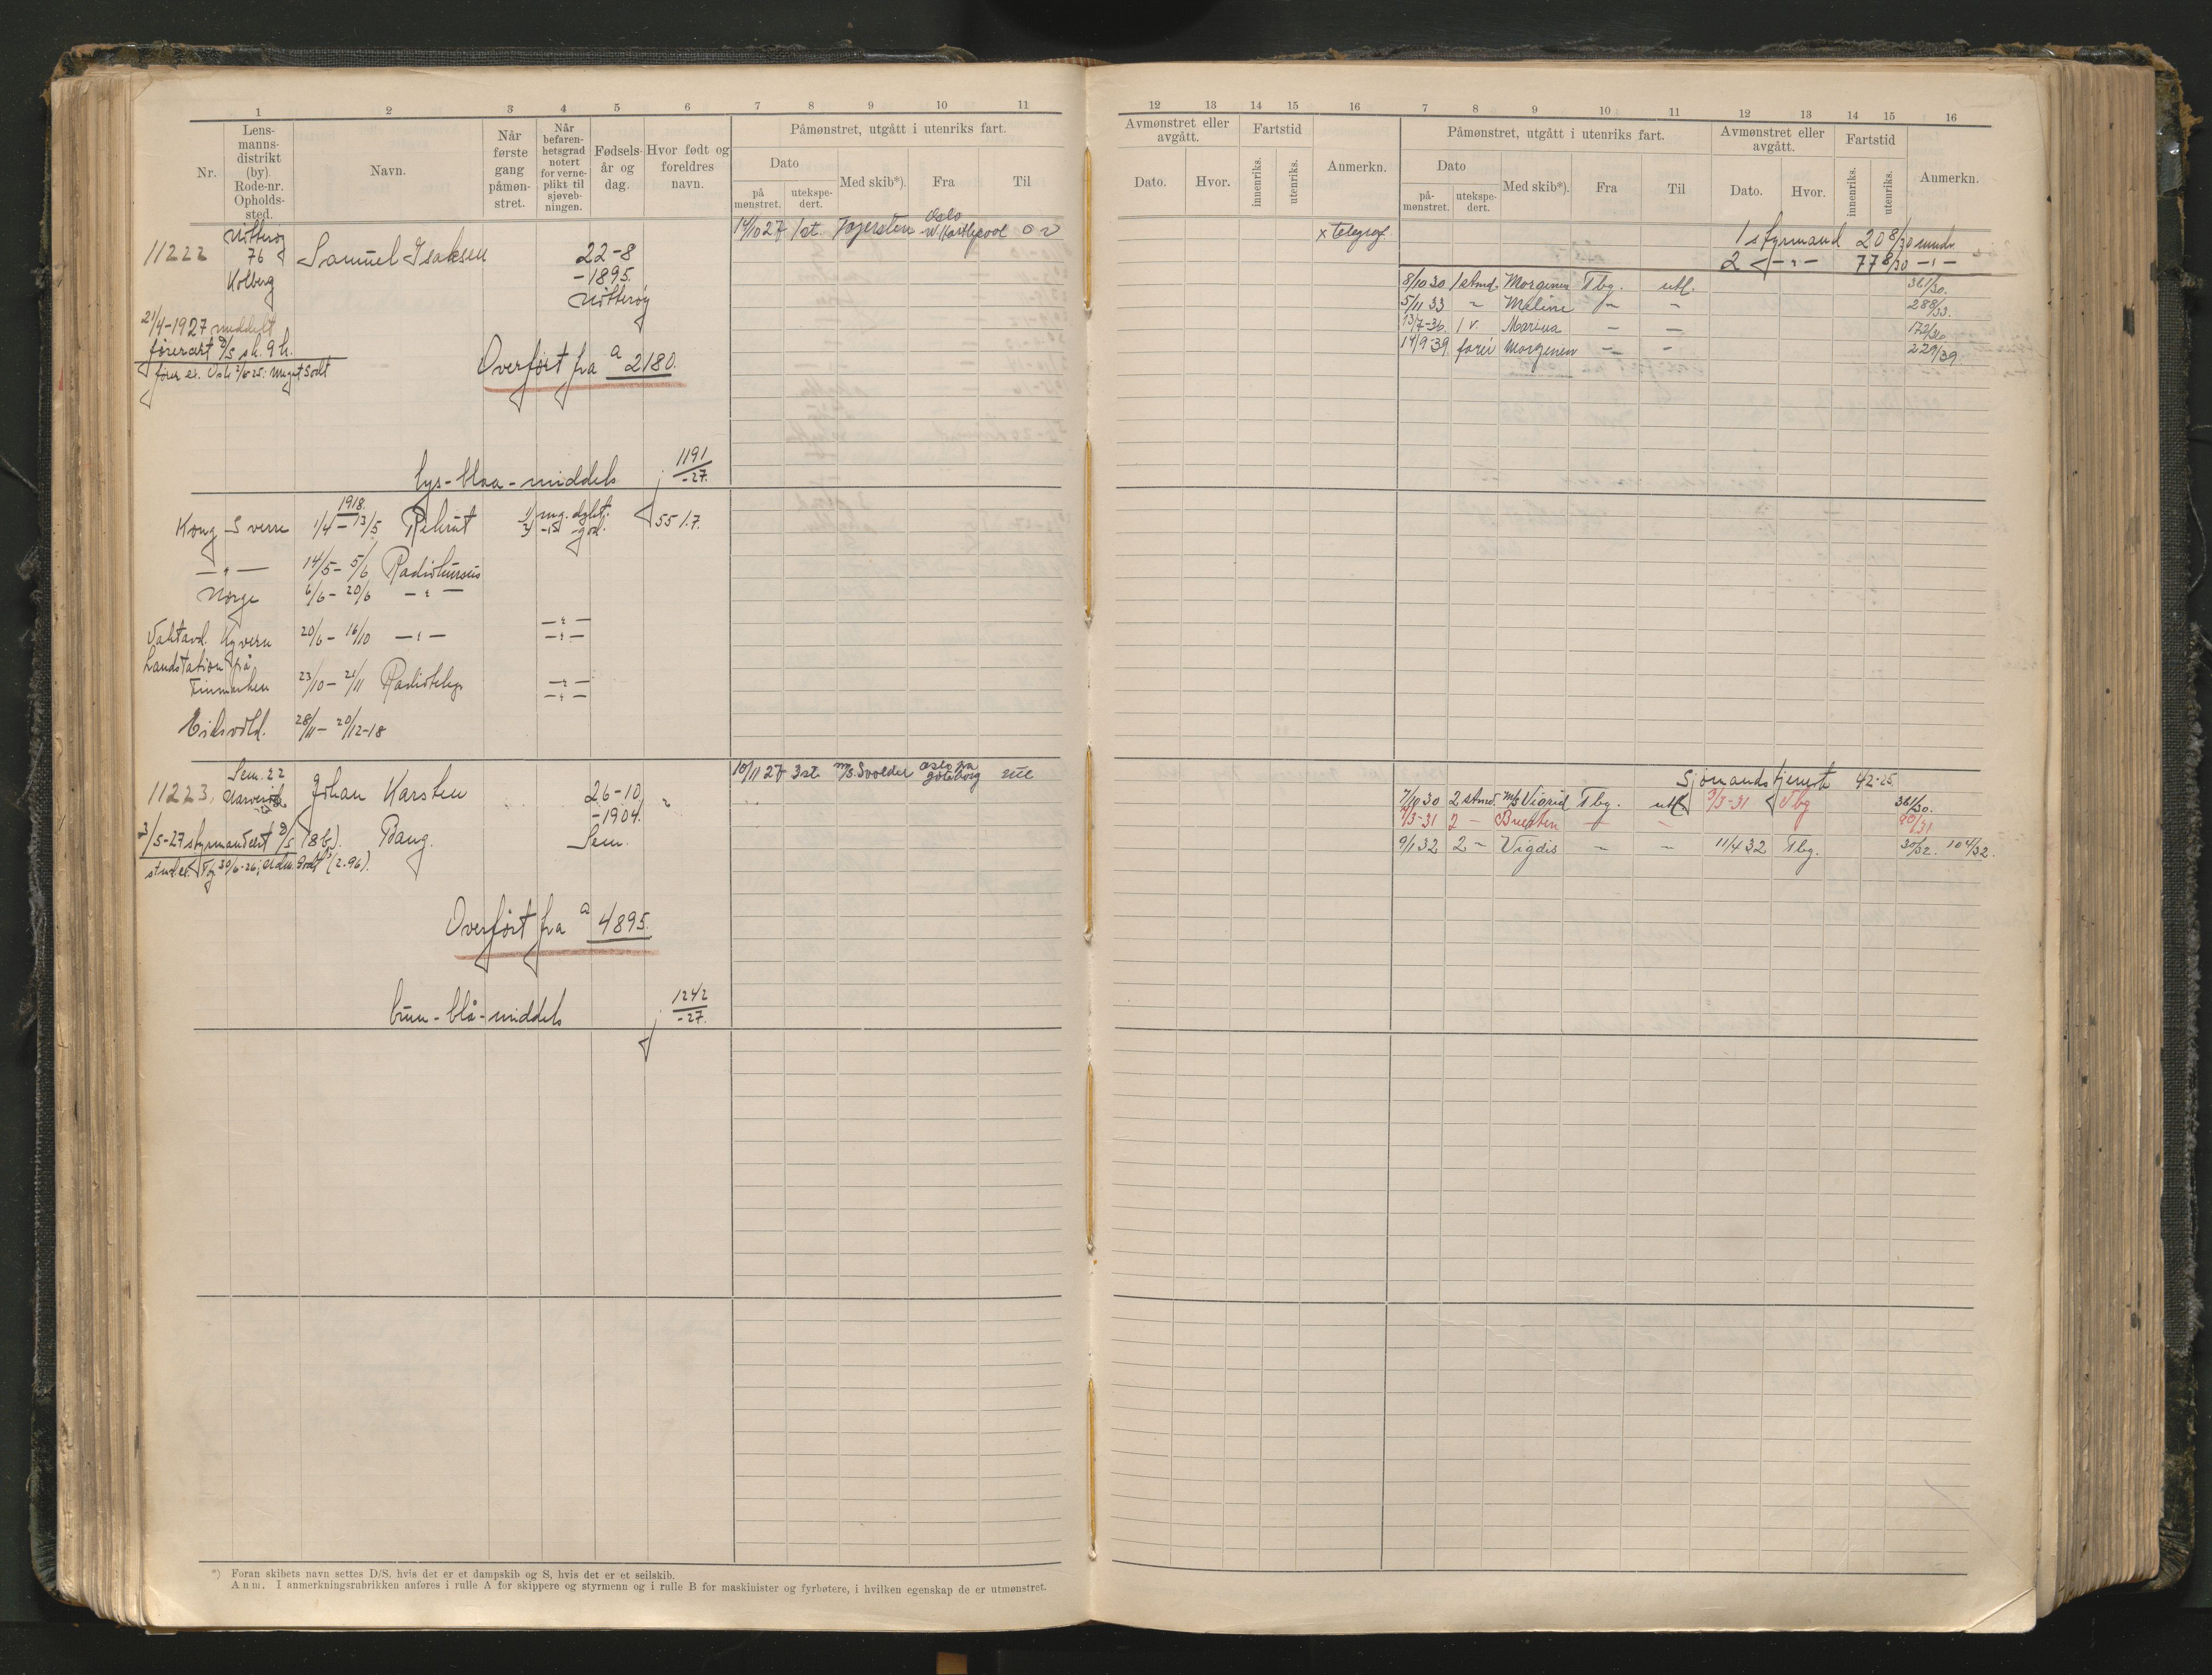 1 2 3 4 5 6 7 8 9 10 11
Nr.
Lens-
manns-
distrikt
(by).
Rode-nr.
Opholds-
sted.
Navn.
Når
første
gang
påmøn-
stret.
Når
befaren-
hetsgrad
notert
for verne-
plikt til
sjøveb-
ningen.
Fødsels-
år og
dag.
Hvor født og
foreldres
navn.
Påmønstret, utgått i utenriks fart.
Dato
på
mønstret.
utekspe-
dert.
Med skib*).
Fra
Til
11222
Nötteröy
76
Kolberg
Samuel Isaksen
22-8
-1895.
Nötteröy
14/10 27 1 st. Fagersten Oslo
W. Hartlepool
21/4-1927 meddelt
förercert
Overført fra a 2180.
lys-blaa-middels
1191
-27.
1918.
Kong Sverre 1/4 - 13/5 Rekrut
-"- 14/5 - 5/6 Radiokursus
Norge 6/6 - 20/6 -"-
20/6 - 16/10 -"-
Landstation på
Finmarken 23/10 - 21/11 Radioteleg
Eidsvold. 28/11 - 20/12-18
11223.
Sem. 22
Johan Karsten
Bang.
26-10
-1904.
Sem.
10/11 27 3 st. m/s. Svolder Oslo via
Göteborg
3/5-27 styrmandcert
Overført fra a 4895.
brun-blå-middels
1242
-27.
*) Foran skibets navn settes D/S, hvis det er et dampskib og S, hvis det er et seilskib.
Anm. I anmerkningsrubrikken anføres i rulle A for skippere og styrmenn og i rulle B for maskinister og fyrbøtere, i hvilken egenskap de er utmønstret.
12 13 14 15 16 7 8 9 10 11 12 13 14 15 16
Avmønstret eller
avgått.
Dato.
Hvor.
Fartstid
innenriks.
utenriks.
Anmerkn.
Påmønstret, utgått i utenriks fart.
Dato
på-
mønstret.
utekspe-
dert.
Med skib*).
Fra
Til
Avmønstret eller
avgått.
Dato.
Hvor.
Fartstid
innenriks.
utenriks.
Anmerkn.
x telegraf.
1 styrmand 20 8/30 mndr.
2 -"- 77 8/30 -"-
8/10 30 1 stmd. Morgenen Tbg. utl. 361/30.
5/11 33 " Maline - - 288/33.
13/7-36. 1 v. - - 172/36
14/9-39. förer Morgenen - - 229/39.
Sjömandstjeneste 42-25.
7/10 30 2 stmd. m/s Vigrid Tbg. utl. 3/3-31 Tbg 361/30.
4/3-31 2 - - - 90/31
9/1 32 2 - Vigdis - - 11/4 32 Tbg. 30/32. 104/32.